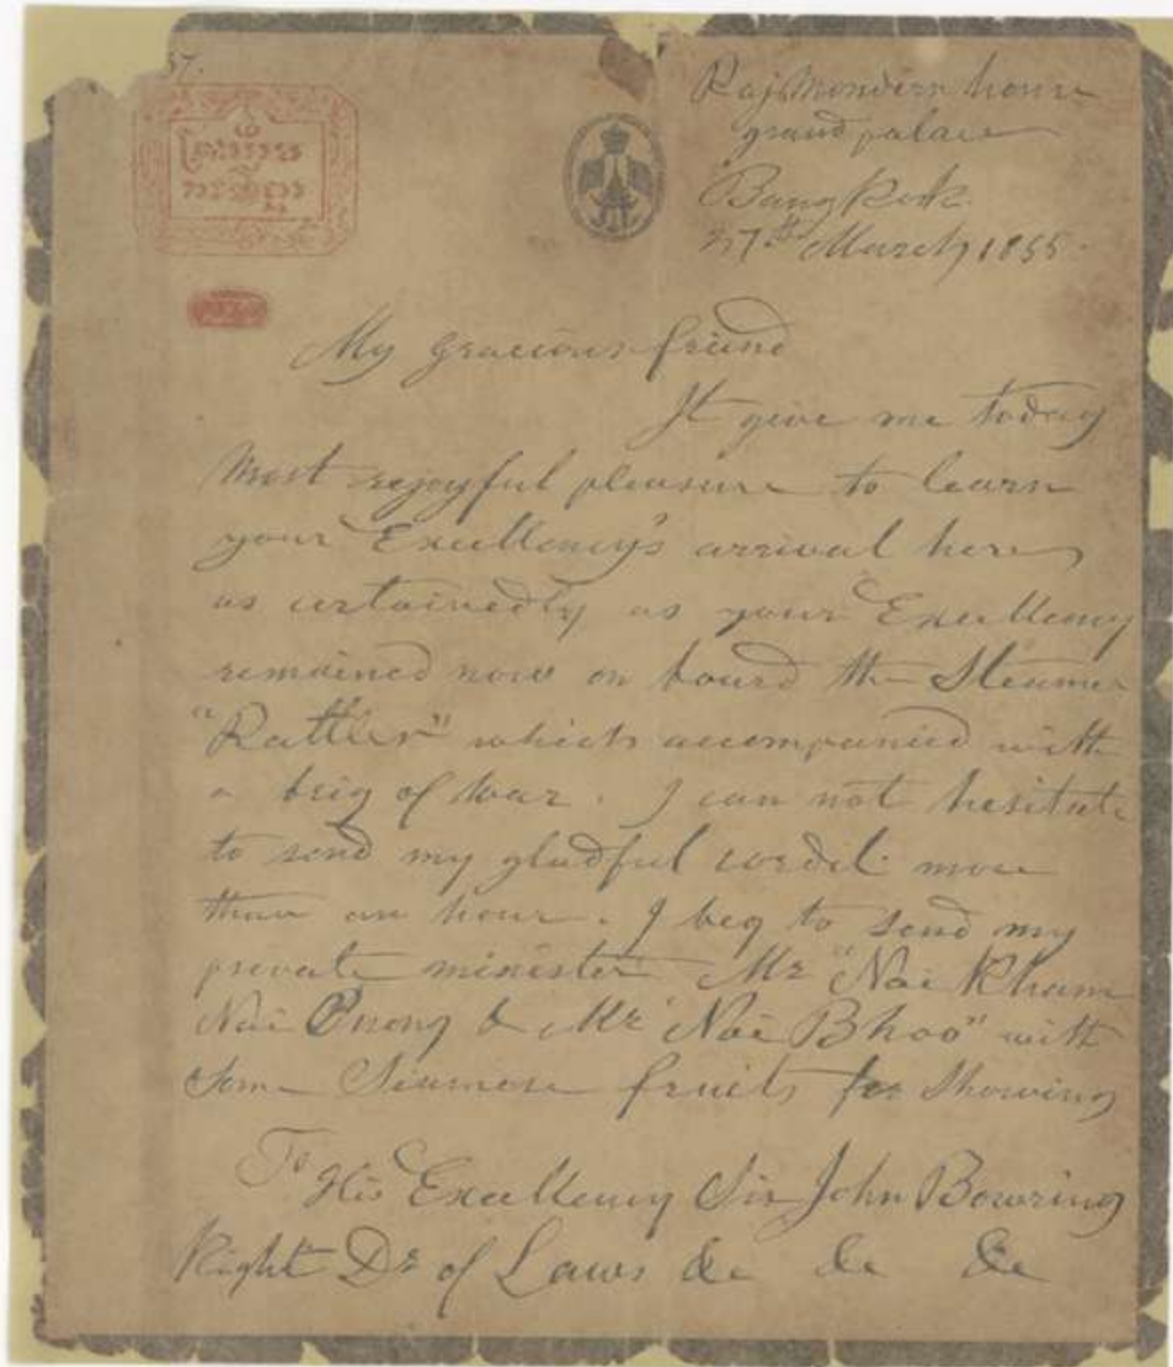 57.
Rajmondirn house
grand palace
Bangkok
27th March 1855.
My gracious friend
It give me today
most rejoyful pleasure to learn
your Excellency's arrival here
as certainedly as your Excellency
remained now on board the Steamer
"Rattler" which accompanied with
a brig of war. I can not hesitate
to send my gladful cordil more
than an hour. I beg to send my
private minister Mr "Nai Kham
Nai Bnong & Mr Nai Bhoo" with
some Siamese fruits for showing
To His Excellency Sir John Bowring
Kight Dr of Laws &c &c &c